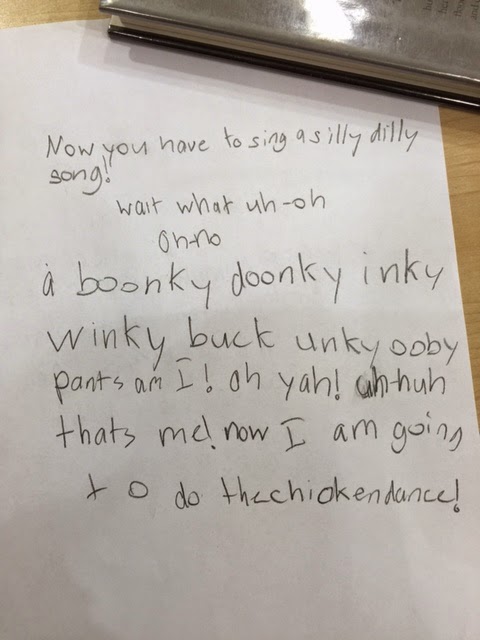 Now you have to sing a silly dilly
song!
wait what uh-oh
oh-no
a boonky doonky inky
winky buck unky ooby
pants am I! oh yah! uh-huh
thats me! now I am going
to do thechickendance!